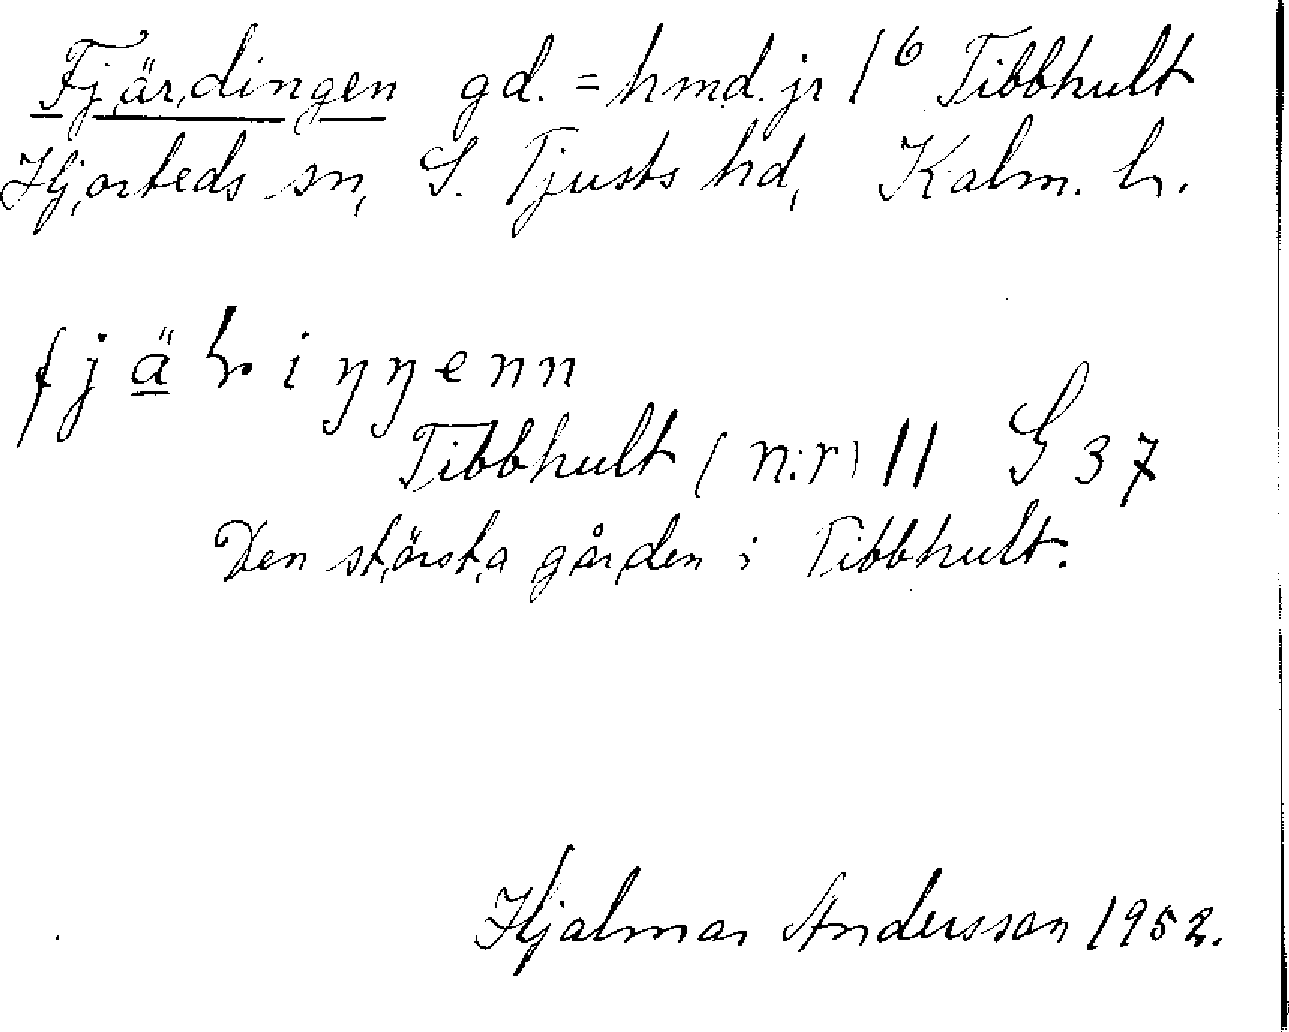 Fjärdingen gd. = hmd. jr 1⁶ Tibbhult
Hjorteds sn, S. Tjusts hd, Kalm. l.
Tibbhult (n:r) 11 G 37
Den största gården i Tibbhult.
Hjalmar Andersson 1952.